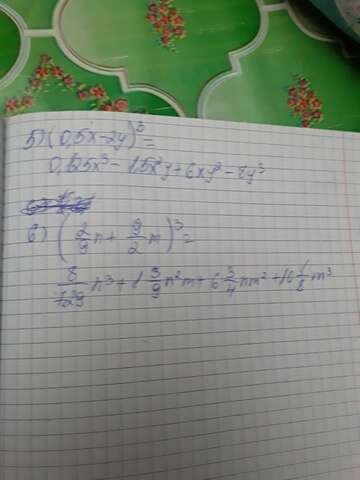 5) (0,5x-2y)³=
0,125x³ - 1,5x²y + 6xy² - 8y³
6) (2/9 n + 9/2 m)³=
8/729 n³ + 1 3/9 n²m + 6 3/4 nm² + 10 1/8 m³